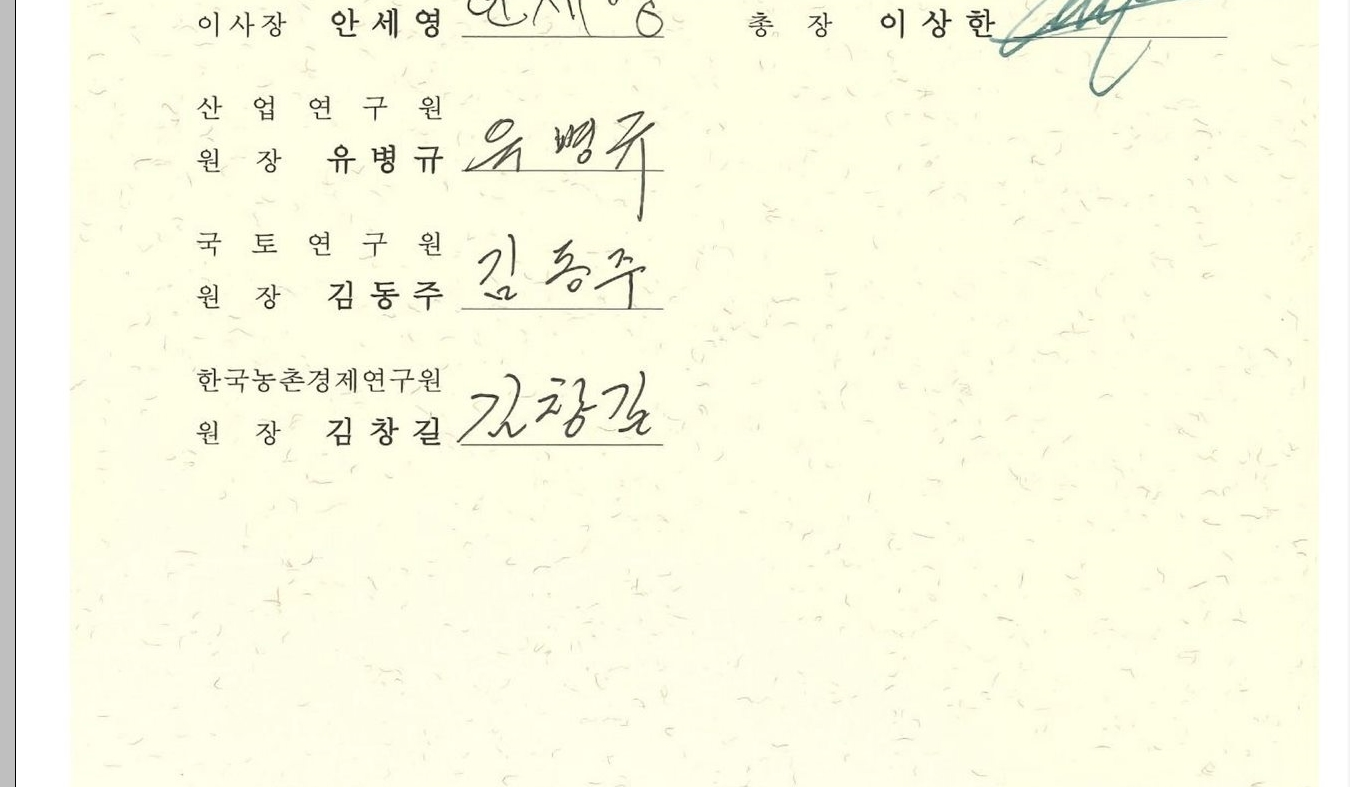 이사장 안세영 안세영
총 장 이상한
산 업 연 구 원
원 장 유병규 유병규
국 토 연 구 원
원 장 김동주 김동주
한국농촌경제연구원
원 장 김창길 김창길